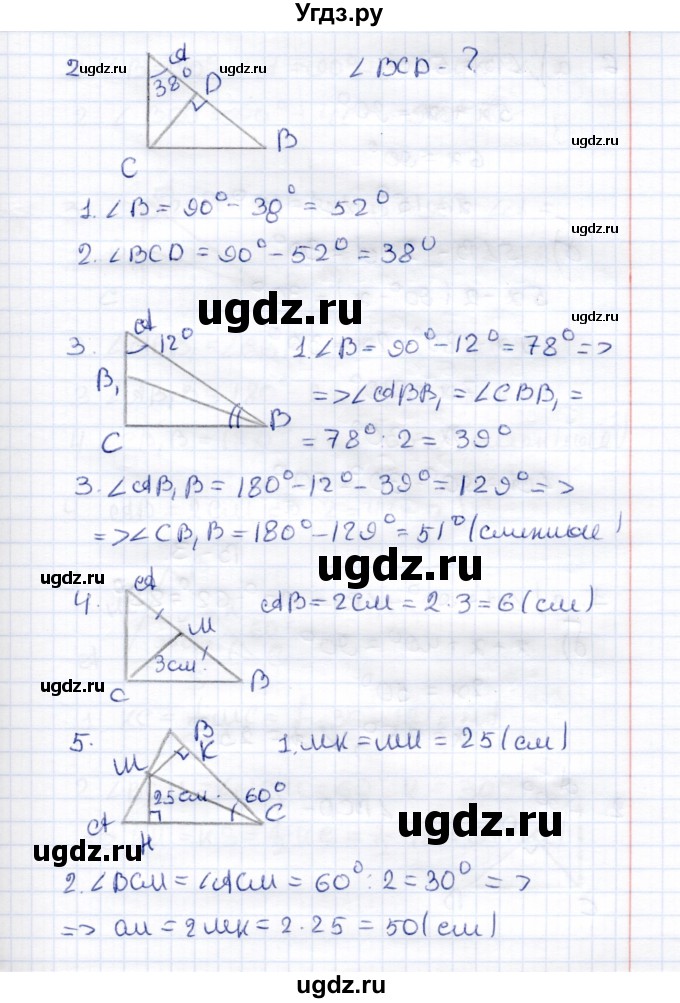 Угдз.ру
2. A 38° D C B ∠BCD - ?
ugdz.ru ugdz.ru ugdz.ru
ugdz.ru
1. ∠B = 90° - 38° = 52°
ugdz.ru
2. ∠BCD = 90° - 52° = 38°
ugdz.ru
3. A 12° B₁ C B 1. ∠B = 90° - 12° = 78° =>
=> ∠ABB₁ = ∠CBB₁ =
= 78° : 2 = 39°
3. ∠AB₁B = 180° - 12° - 39° = 129° =>
=> ∠CB₁B = 180° - 129° = 51° (смежные)
ugdz.ru
ugdz.ru
4. A M 3см C B AB = 2CM = 2·3 = 6 (см)
ugdz.ru
ugdz.ru
5. B K M 25см 60° A H C 1. MK = MH = 25 (см)
ugdz.ru
ugdz.ru
2. ∠BCM = ∠ACM = 60° : 2 = 30° =>
=> CM = 2MK = 2·25 = 50 (см)
ugdz.ru
ugdz.ru